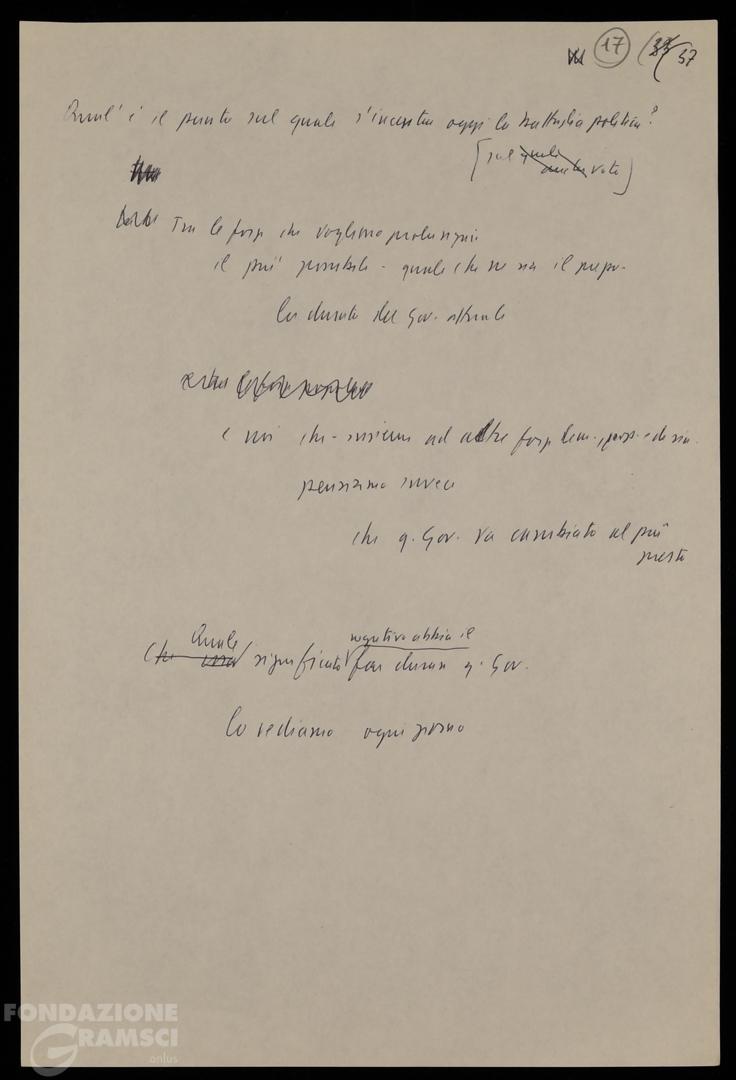 17 57
Qual'è il punto sul quale s'incentra oggi la battaglia politica?
[sul quale anche voto]
Tra le forze che vogliono prolungare
il più possibile - quale che ne sia il prezzo -
la durata del Gov. attuale
e noi che - insieme ad altre forze dem., e di sin.
pensiamo invece
che q. Gov. va cambiato al più
presto
Quale negativo abbia il
Che significato far durare q. Gov.
lo vediamo ogni giorno
FONDAZIONE
GRAMSCI
onlus